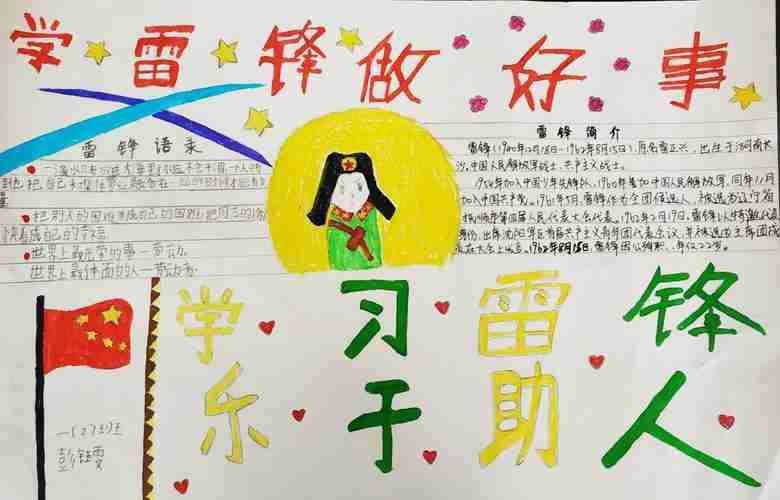 学雷锋做好事
雷锋语录
一滴水只有放进大海里才永远不会干涸,一个人只有
到他把自己和集体事业融合在一起的时候才能有力
量
把别人的困难当成自己的困难,把同志的愉
快看成自己的幸福
世界上最光荣的事—劳动。
世界上最体面的人—劳动者
雷锋简介
雷锋(1940年12月18日-1962年8月15日),原名雷正兴,出生于湖南长
沙,中国人民解放军战士,共产主义战士。
1954年加入中国少年先锋队,1960年参加中国人民解放军,同年11月
加入中国共产党。1961年5月,雷锋作为全团候选人,被选为辽宁省
抚顺市第四届人民代表大会代表。1962年2月19日,雷锋以特邀代表
身份,出席沈阳军区首届共产主义青年团代表会议,并被选为主席团成
员在大会上发言。1962年8月15日,雷锋因公殉职,年仅22岁。
学习雷锋
乐于助人
一(2)班
彭钰雯